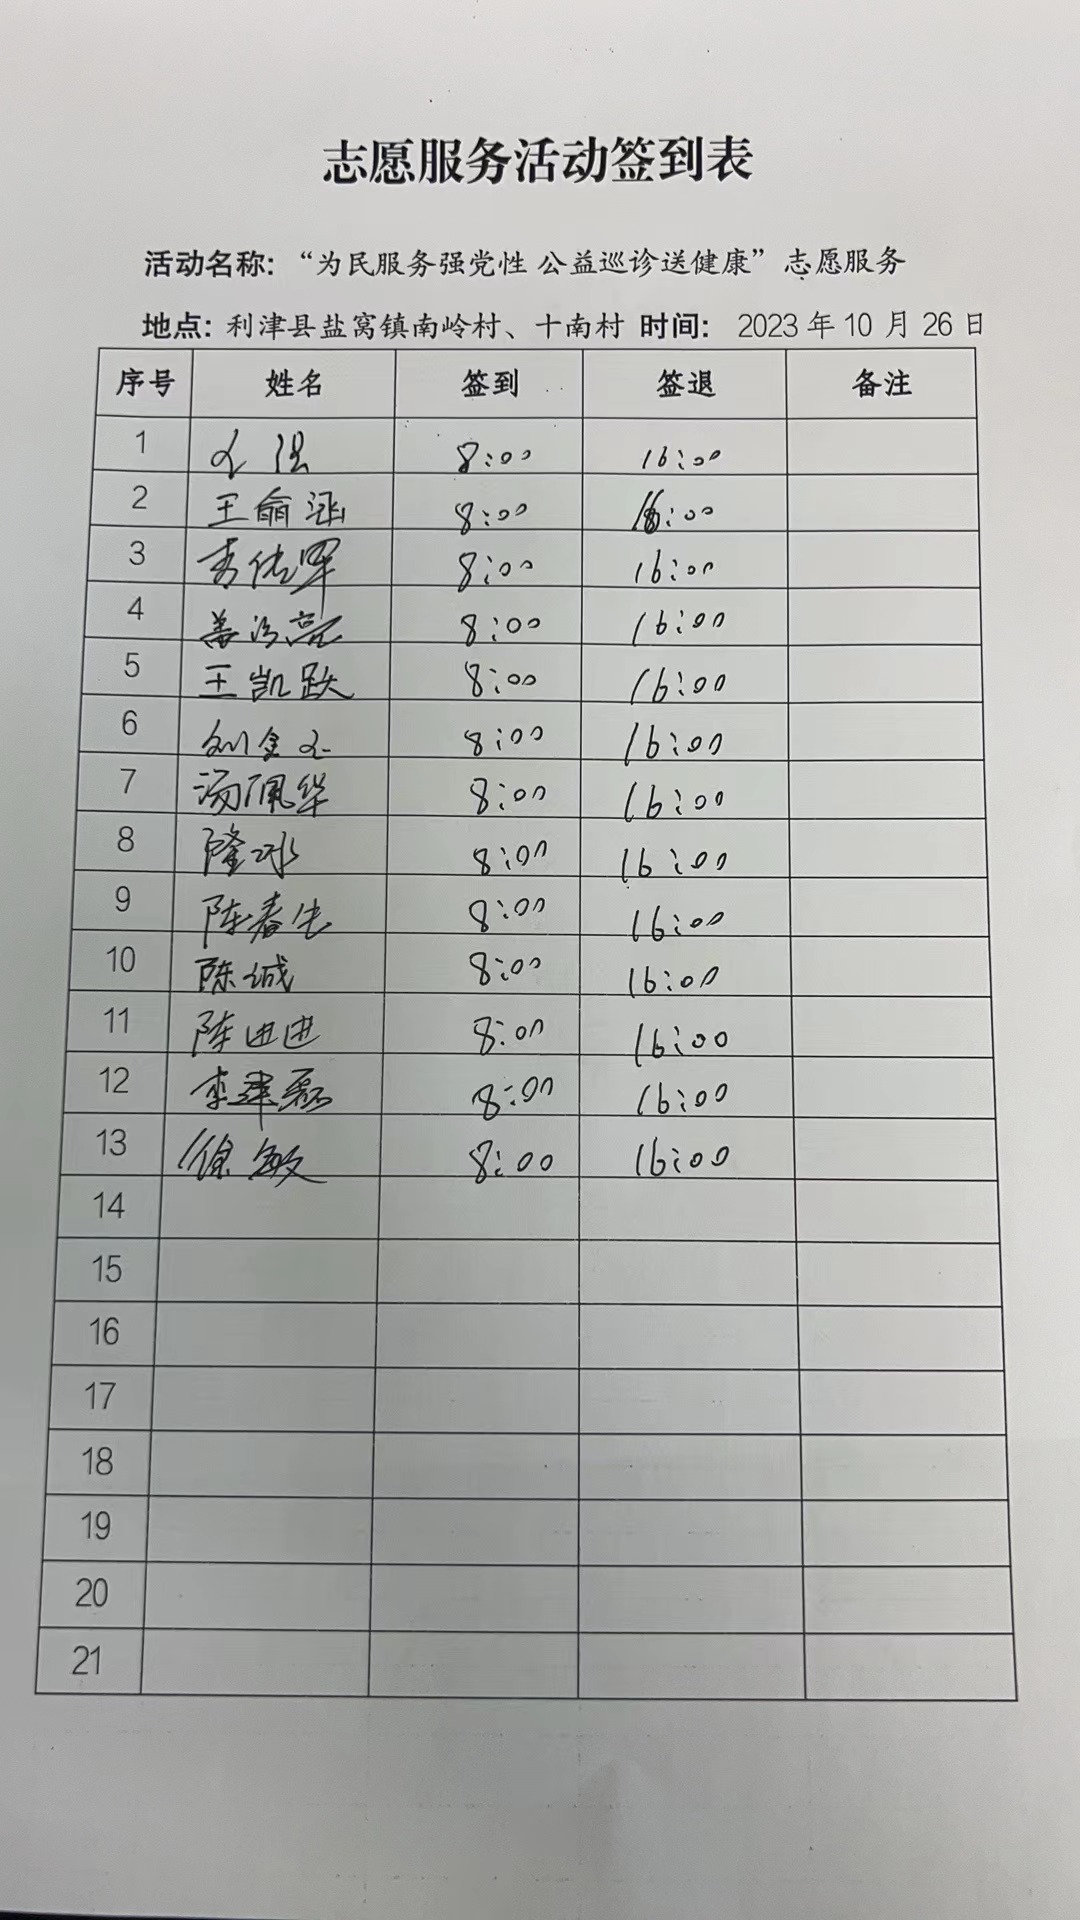 志愿服务活动签到表
活动名称：“为民服务强党性 公益巡诊送健康”志愿服务
地点：利津县盐窝镇南岭村、十南村 时间： 2023年10月26日
序号 姓名 签到 签退 备注
1 8:00 16:00
2 王俞涵 8:00 16:00
3 8:00 16:00
4 8:00 16:00
5 王凯跃 8:00 16:00
6 8:00 16:00
7 汤佩华 8:00 16:00
8 隆冰 8:00 16:00
9 陈春生 8:00 16:00
10 陈诚 8:00 16:00
11 陈进进 8:00 16:00
12 李建磊 8:00 16:00
13 徐敏 8:00 16:00
14
15
16
17
18
19
20
21